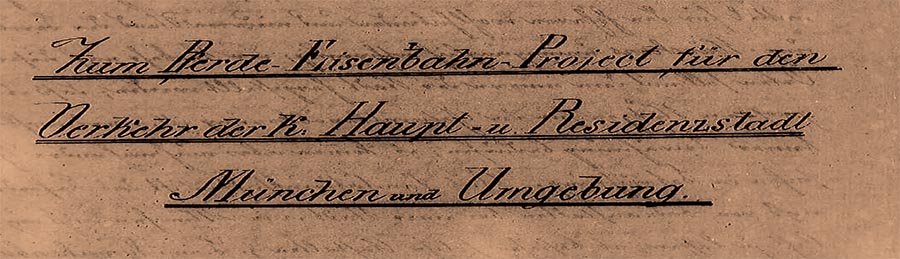 Zum Pferde-Eisenbahn-Project für den
Verkehr der k. Haupt- u Residenzstadt
München und Umgebung.